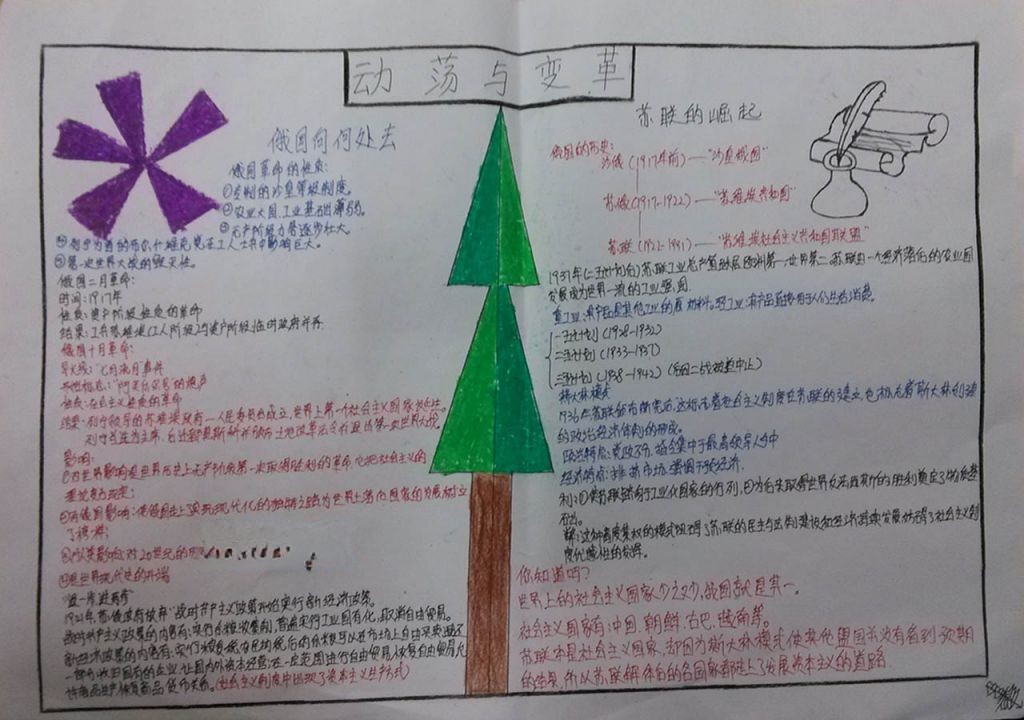 动荡与变革
俄国向何处去
俄国革命的检索:
①专制的沙皇等级制度。
②农业大国,工业基础薄弱。
③无产阶级力量逐步壮大。
④列宁为首的布尔什维克党在工人士兵中影响巨大。
⑤第一次世界大战的毁灭性。
俄国二月革命:
时间:1917年
性质:资产阶级性质的革命
结果:工兵苏维埃(工人阶级)与资产阶级临时政府并存
俄国十月革命:
导火线:"七月流血"事件
开始标志:"阿芙乐尔号"的炮声
性质:社会主义性质的革命
结果:列宁领导的苏维埃政府—人民委员会成立,世界上第一个社会主义国家诞生。
列宁当选为主席,
影响:
①对世界影响:是世界历史上无产阶级第一次取得胜利的革命,它把社会主义的
理论变为现实;
②对俄国影响:使俄国走上了实现现代化的独特之路,为世界上落后国家的发展树立
了榜样;
④是世界现代史的开端
1921年,苏俄政府放弃"战时共产主义"政策开始实行新经济政策。
战时共产主义政策的内容有:实行余粮收集制,普遍实行工业国有化,取消自由贸易。
(社会主义制度中出现了资本主义生产方式)
苏联的崛起
俄国的历史:
沙俄(1917年前)——"沙皇俄国"
苏俄(1917-1922)——"苏维埃共和国"
苏联(1922-1991)——"苏维埃社会主义共和国联盟"
1937年(二五计划后)苏联工业总产值跃居欧洲第一,世界第二,苏联由一个经济落后的农业国
发展成为世界一流的工业强国
重工业:其产品是其他工业的原材料。轻工业:其产品直接用于人们生活消费。
一五计划(1928-1932)
二五计划(1933-1937)
三五计划(1938-1942)(因二战被迫中止)
斯大林模式
1936年苏联颁布新宪法,这标志着社会主义制度在苏联的建立,也标志着斯大林创建
的政治经济体制的形成。
政治特点:党政不分,权力集中于最高领导人手中
经济特点:排斥市场,
利:①使苏联跻身于工业化国家的行列,②为后来取得世界反法西斯的胜利奠定了物质基
础。
弊:这种高度集权的模式阻碍了苏联的民主与法制建设和经济持续发展,妨碍了社会主义制
度优越性的发挥。
你知道吗?
世界上的社会主义国家少之又少,我国就是其一。
社会主义国家有:中国、朝鲜、古巴、越南等。
苏联本是社会主义国家,却因为斯大林模式使其他盟国并没有看到预期
的结果,所以苏联解体后的各国家都走上了发展资本主义的道路